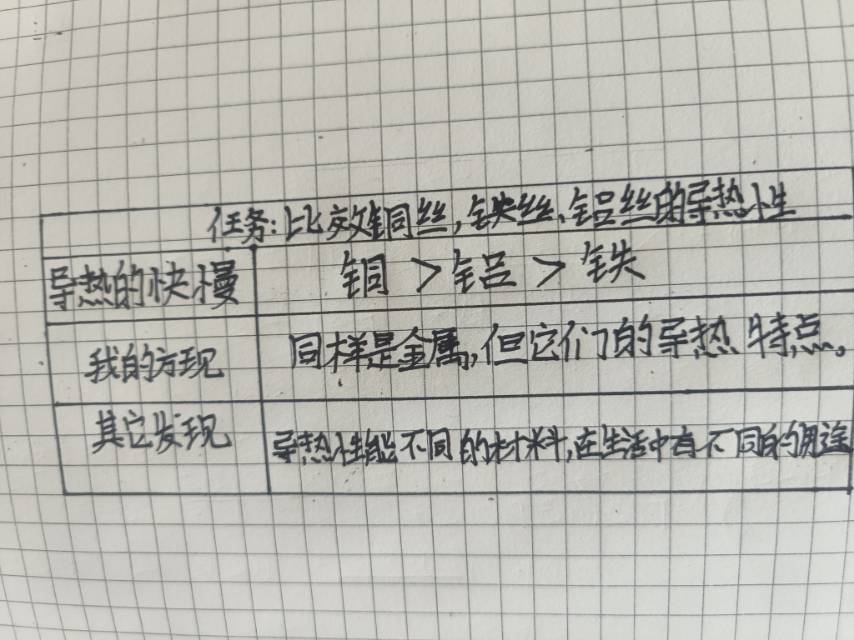 任务:比效铜丝,铁丝、铝丝的导热性
导热的快慢 铜>铝>铁
我的方现 同样是金属,但它们的导热特点。
其它发现 导热性能不同的材料,在生活中有不同的用途